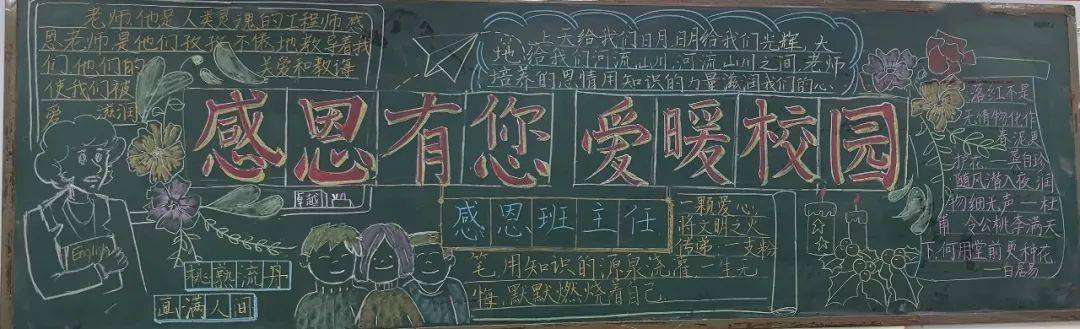 老师他是人类灵魂的工程师感
恩老师是他们孜孜不倦地教导着我
们他们的 关爱和教诲
使我们被
爱 滋润
上天给我们日月,日月给我们光辉,大
地,给我们河流山川,河流山川之间老师
培养的恩情用知识的力量滋润我们的心
感恩有您 爱暖校园
卓越
感恩班主任
English
桃熟流丹
直满人间
一颗爱心,
将文明之火
传递,一支粉
笔,用知识的源泉浇灌一生无
悔,默默燃烧着自己
落红不是
无情物化作
春泥更
护花——龚自珍
随风潜入夜润
物细无声——杜
甫 令公桃李满天
下何用堂前更种花
——白居易